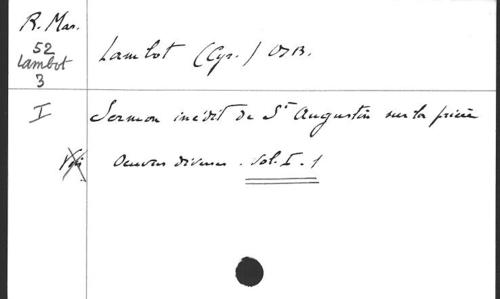 R. Mar.
52
Lambot
3
Lambot (Cyr.) OSB.
I
Sermon inédit de St Augustin sur la prière
Voir
Oeuvres diverses. Vol. I. 1